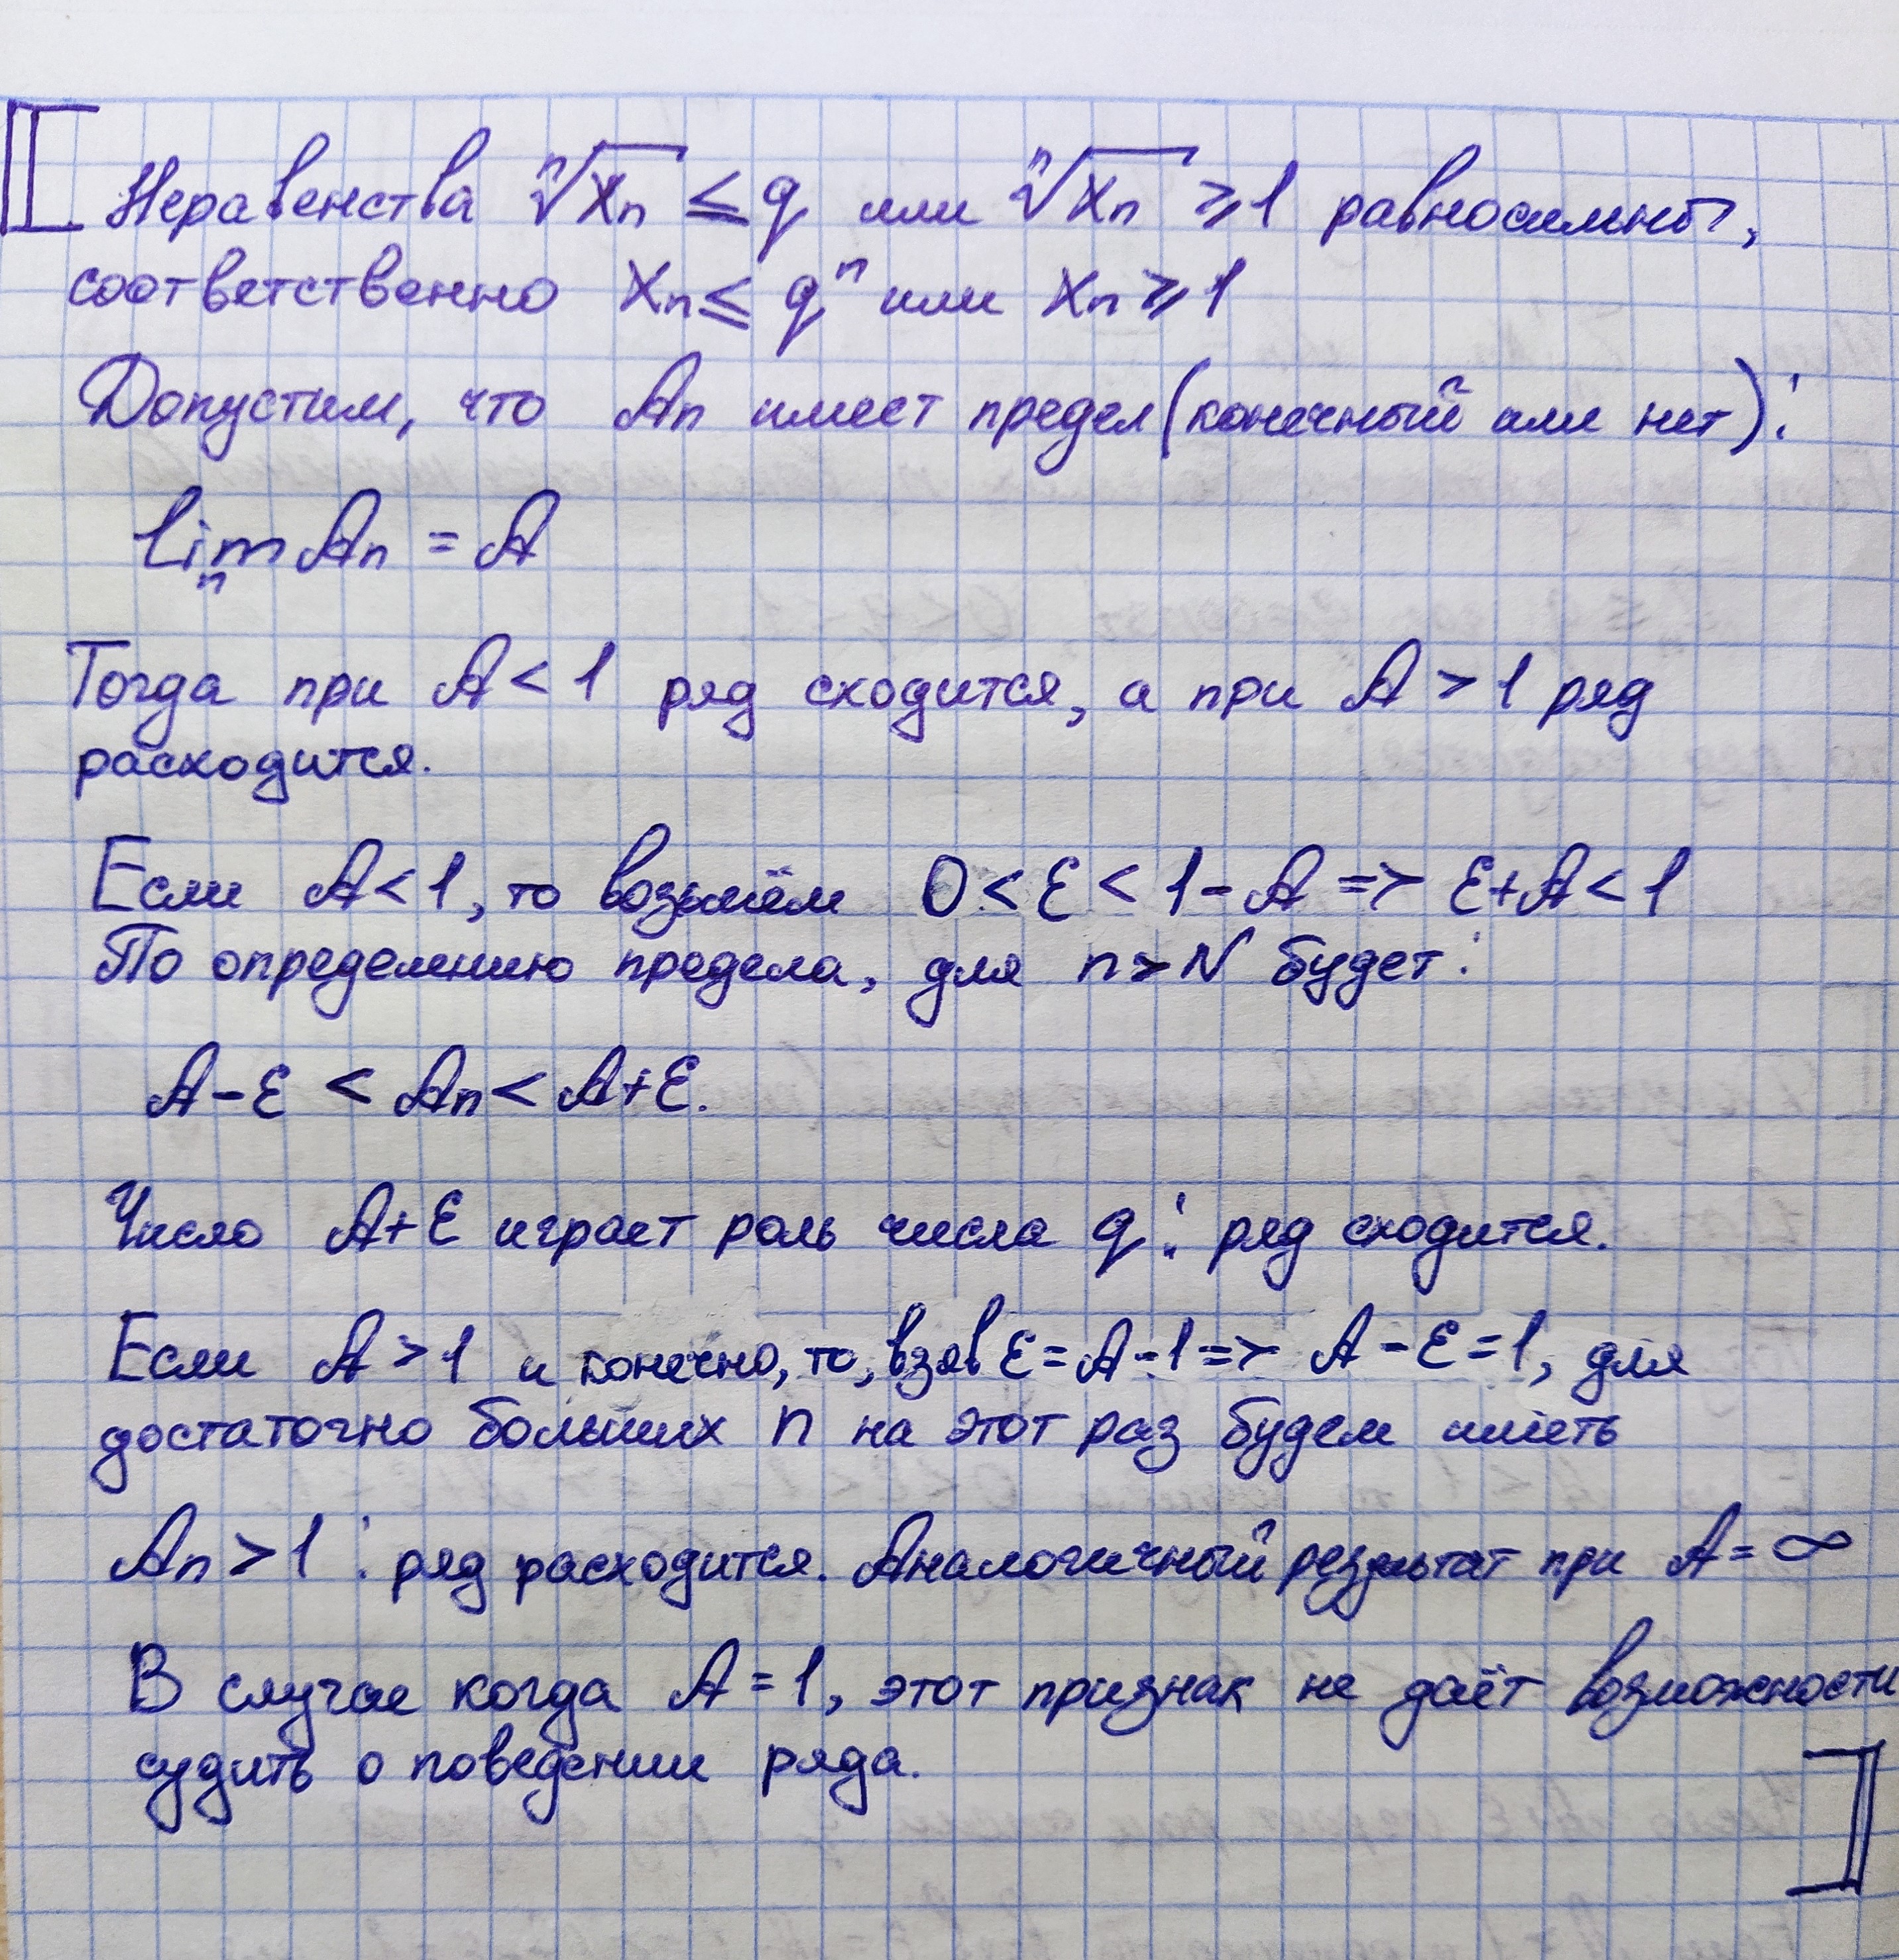 Неравенства ⁿ√xₙ ≤ q или ⁿ√xₙ ≥ 1 равносильны,
соответственно xₙ ≤ qⁿ или xₙ ≥ 1
Допустим, что Aₙ имеет предел (конечный или нет):
lim Aₙ = A
n
Тогда при A < 1 ряд сходится, а при A > 1 ряд
расходится.
Если A < 1, то возьмём 0 < ε < 1 - A => ε + A < 1
По определению предела, для n > N будет:
A - ε < Aₙ < A + ε.
Число A + ε играет роль числа q: ряд сходится.
Если A > 1 и конечно, то, взяв ε = A - 1 => A - ε = 1, для
достаточно больших n на этот раз будем иметь
Aₙ > 1 : ряд расходится. Аналогичный результат при A = ∞
В случае когда A = 1, этот признак не даёт возможности
судить о поведении ряда.